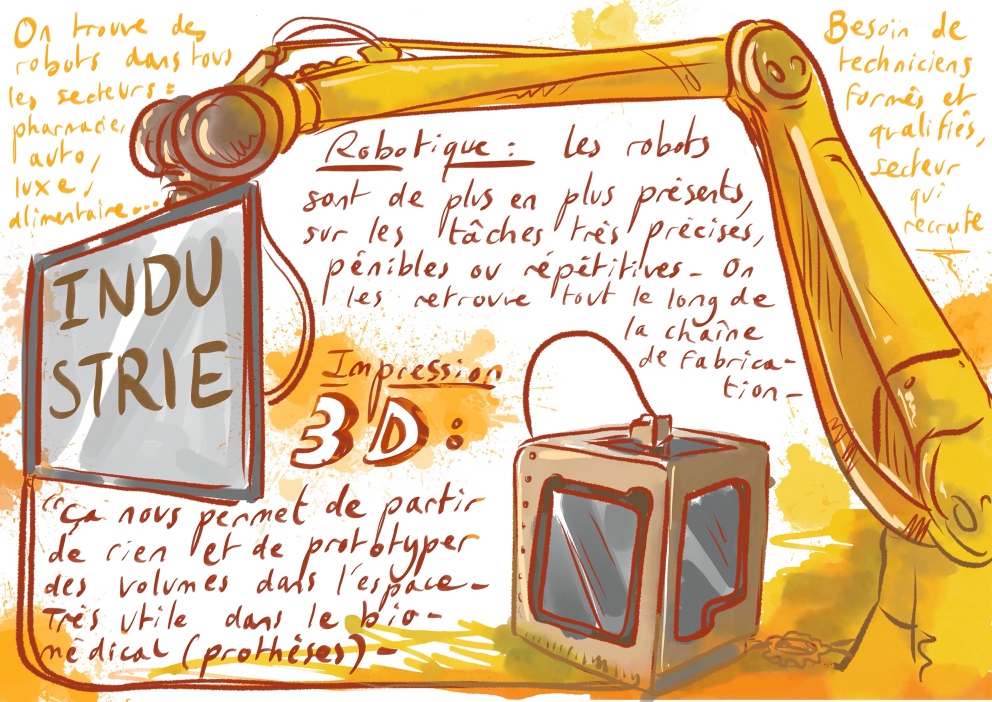 On trouve des
robots dans tous
les secteurs :
pharmacie,
auto,
luxe,
alimentaire...
Besoin de
techniciens
formés et
qualifiés,
secteur
qui
recrute
INDU
STRIE
Robotique : Les robots
sont de plus en plus présents,
sur les tâches très précises,
pénibles ou répétitives. On
les retrouve tout le long de
la chaîne
de fabrica-
tion.
Impression
3D :
"Ça nous permet de partir
de rien et de prototyper
des volumes dans l'espace.
Très utile dans le bio-
médical (prothèses).